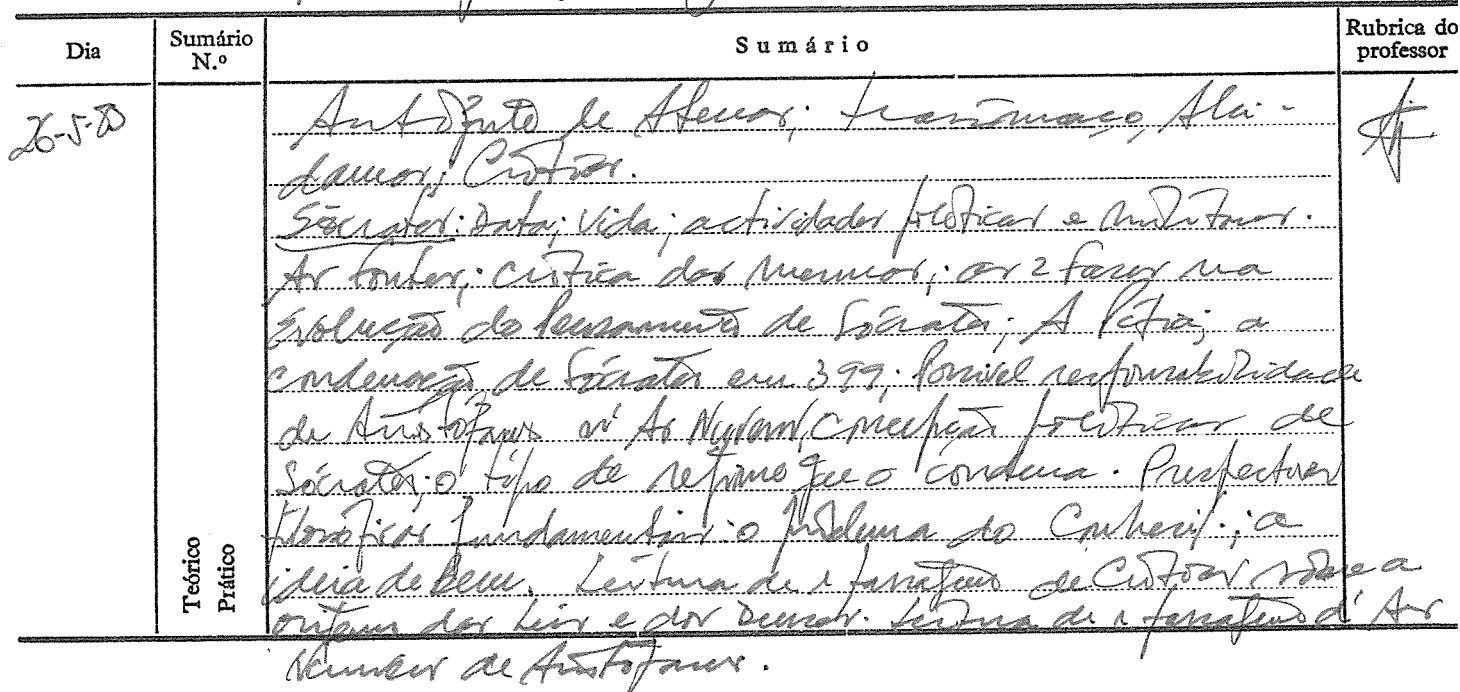 Dia
Sumário N.º
Sumário
Rubrica do professor
26-5-80
Antifonte de Atenas; Trasímaco, Alci-
damas; Crítias.
Sócrates: Data; Vida; actividades políticas e militares.
As fontes; crítica das mesmas; as 2 fases na
Evolução do Pensamento de Sócrates; A Pítia; a
condenação de Sócrates em 399; Possível responsabilidade
de Aristófanes n' As Nuvens, concepção políticas de
Sócrates; o tipo de regime que o condena. Perspectivas
filosóficas fundamentais: o problema do Conheci/.; a
ideia de Bem. Leitura de 1 passagem de Crítias sobre a
origem das Leis e dos Deuses. Leitura de 1 passagem d' As
Nuvens de Aristófanes.
Teórico
Prático